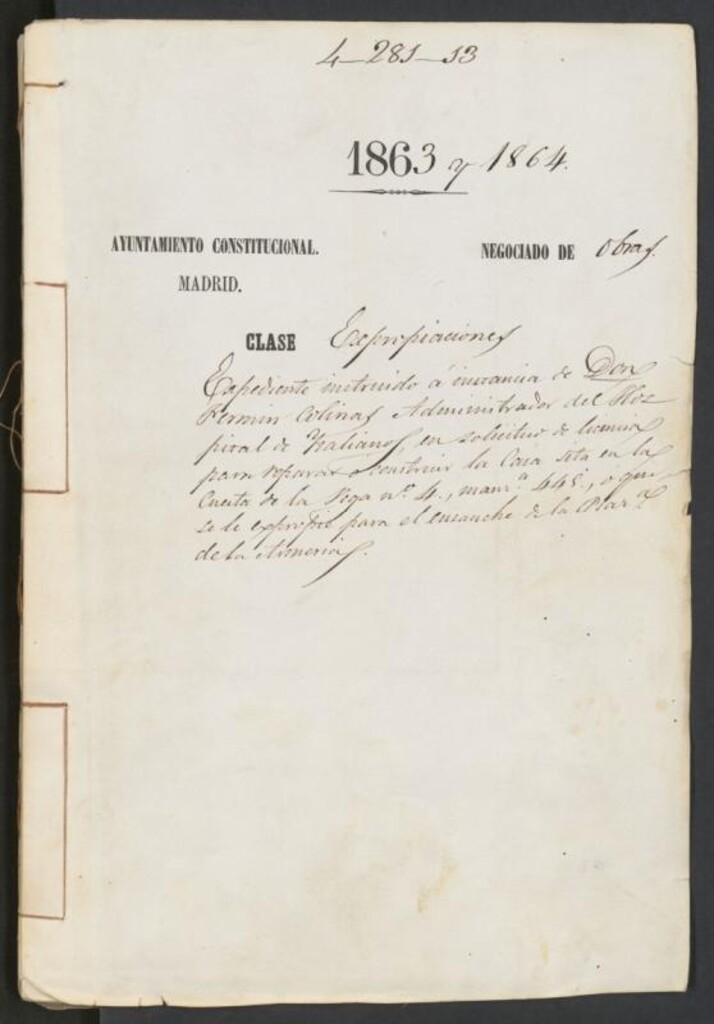 4-281-13
1863 y 1864.
AYUNTAMIENTO CONSTITUCIONAL.
MADRID.
NEGOCIADO DE Obras.
CLASE Expropiaciones
Expediente instruido á instancia de Don
Fermin Colinas Administrador del Hos-
pital de Italianos, en solicitud de licencia
para reparar o construir la Casa sita en la
Cuesta de la Vega nº 4., manz.ª 445., o que
se le expropie para el ensanche de la Plaz.ª
de la Armeria.